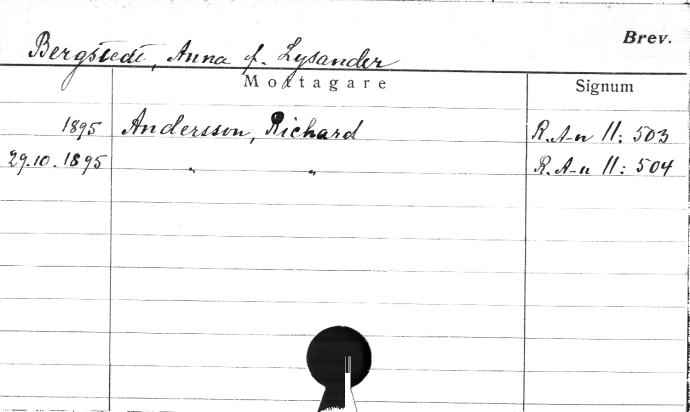 Brev.
Bergstedt, Anna f. Lysander
Mottagare Signum
1895 Andersson, Richard R.A-n II: 503
29.10.1895 " " R.A-n II: 504